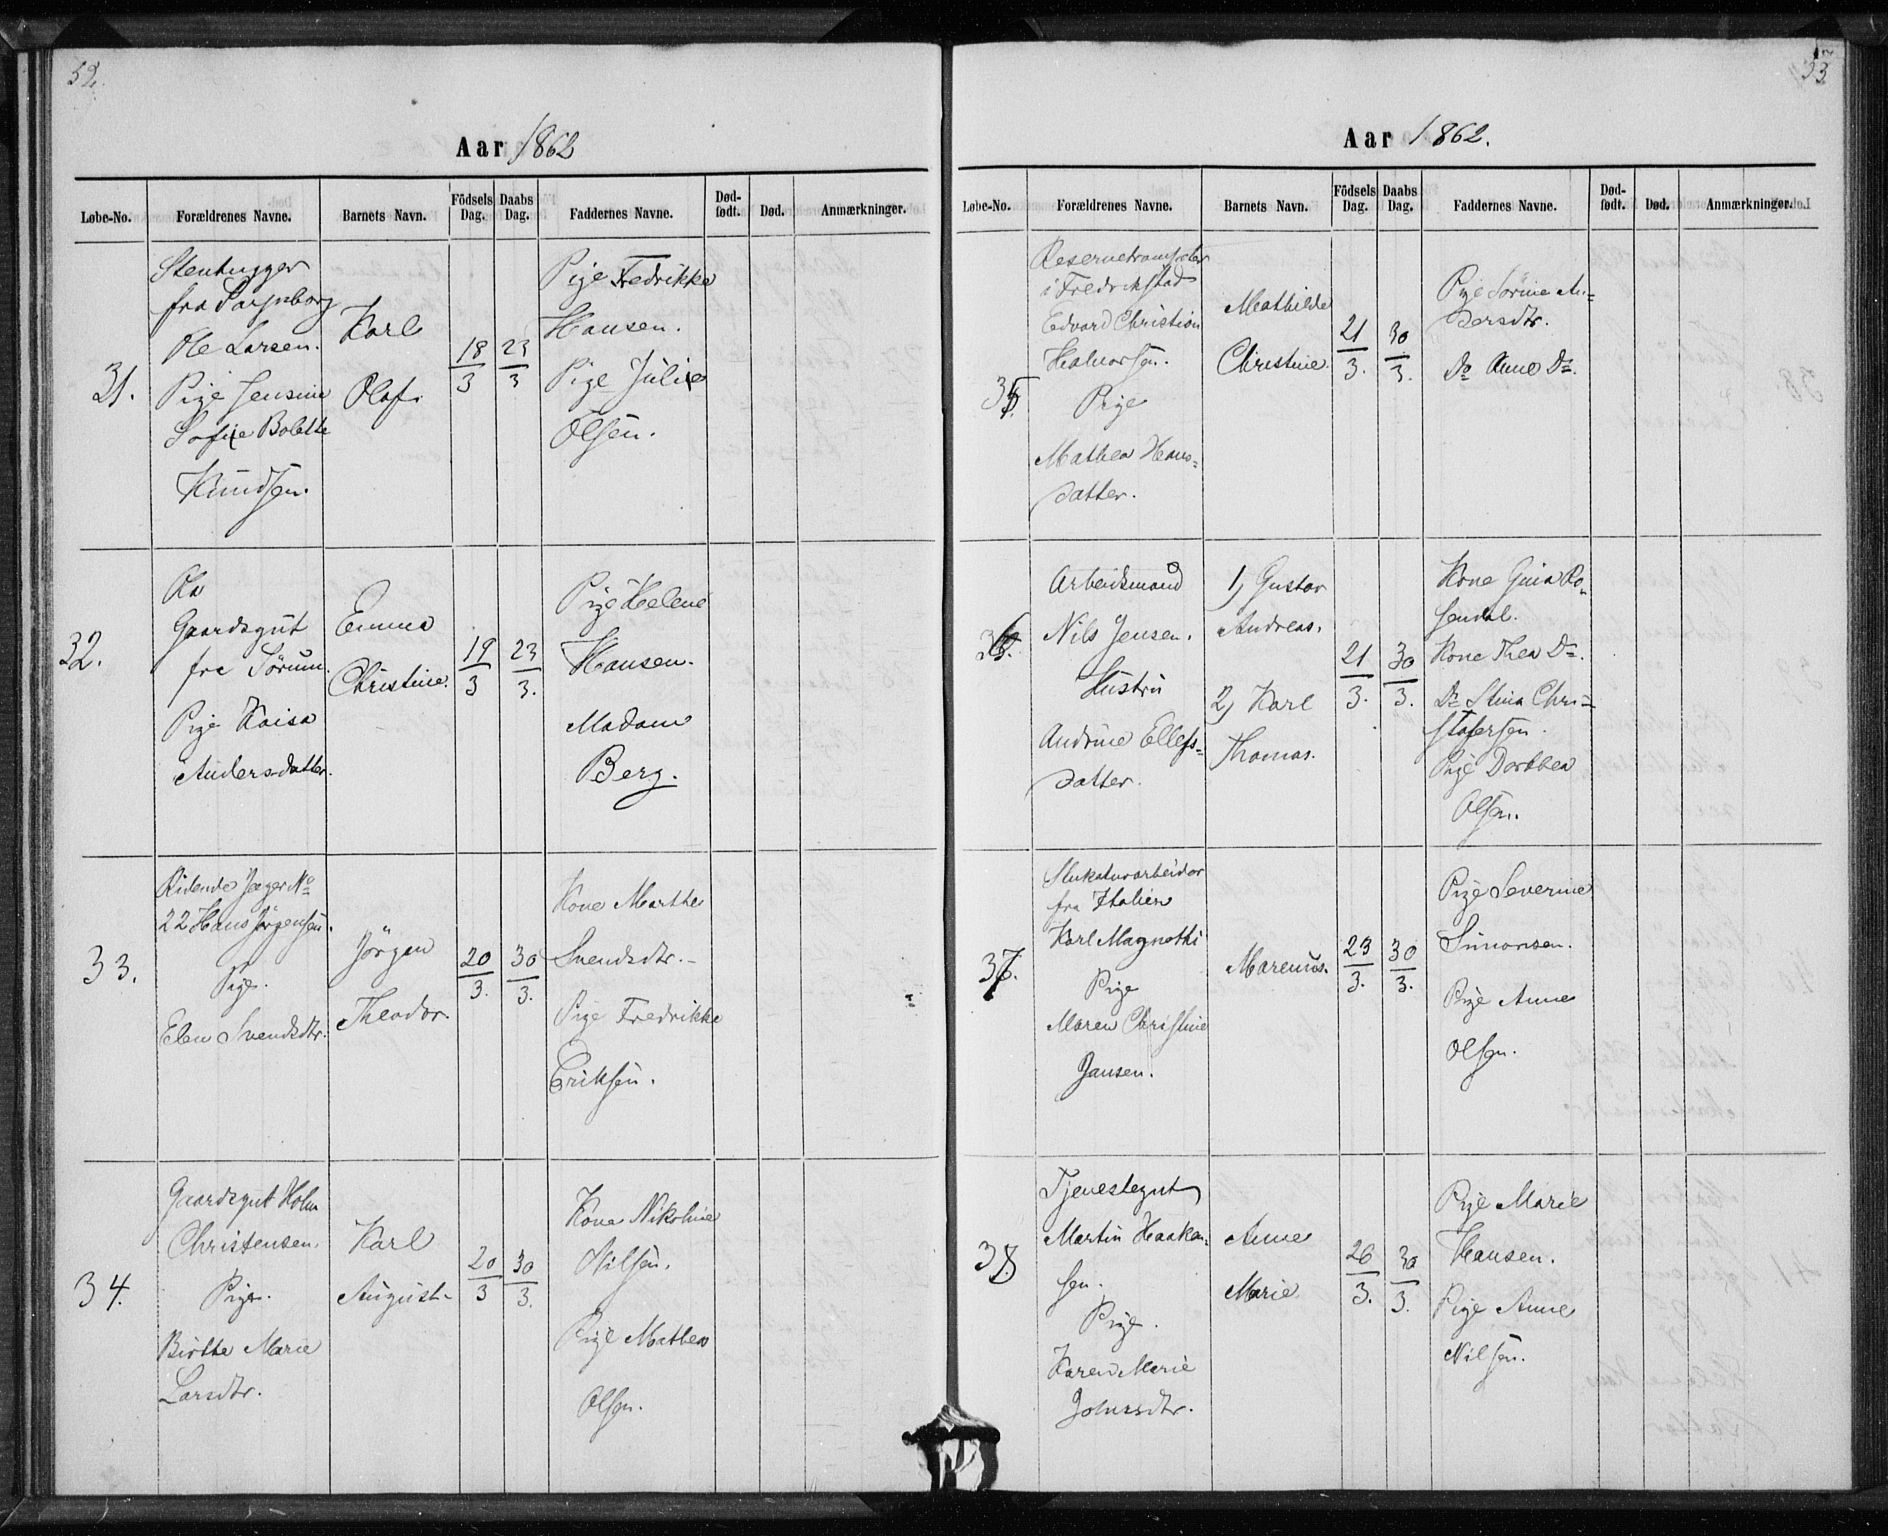 52.
Aar 1862
Løbe-No. Forældrenes Navne. Barnets Navn. Födsels Dag. Daabs Dag. Faddernes Navne. Død-født. Død. Anmærkninger.
31.
Stenhugger
fra
Ole Larsen.
Pige Jensine
Sofie Bolette
Knudsen.
Karl
Olaf.
18/3
23/3
Pige Fredrikke
Hansen.
Pige Julie
Olsen.
32.
Gaardsgut
fra Sørum.
Pige Kaisa
Andersdatter.
Emma
Christine.
19/3
23/3.
Pige Helene
Hansen.
Madam
Berg.
33.
Ridende Jæger No
22 Hans Jørgensen.
Pige.
Elen Svendsdtr.
Jörgen
Theodor.
20/3.
30/3.
Kone Marthe
Svendsdtr.-
Pige Fredrikke
Eriksen.
34.
Gaardsgut Holm
Christensen.
Pige.
Birthe Marie
Larsdtr.
Karl
August-
20/3
30/3.
Kone Nikoline
Nilsen.
Pige Mathea
Olsen.
53
Aar 1862.
Løbe-No. Forældrenes Navne. Barnets Navn. Födsels Dag. Daabs Dag. Faddernes Navne. Død-født. Død. Anmærkninger.
35.
i Fredrikstad
Edvard Christian
Halvorsen.
Pige
Mathea Hans=
datter.
Mathilde
Christine.
21/3.
30/3.
Pige Sörine An=
dersdtr.
Do Anne Do.
36.
Arbeidsmand
Nils Jensen.
Hustru
Andrine Ellefs=
datter.
1, Gustav
Andreas.
2, Karl
Thomas.
21/3.
30/3.
Kone Guia Ro=
sendal.
Kone Thea Do.
Do Stina Chri=
stofersen.
Pige Dorthea
Olsen.
37.
Stukaturarbeider
fra Italien
Karl Magnethi
Pige
Maren Christine
Jansen.
Marenus.
23/3.
30/3.
Pige Severine
Simonsen.
Pige Anne
Olsen.
38
Tjenestegut
Martin Haaken=
sen.
Pige.
Karen Marie
Johnsdtr.
Anne
Marie
26/3.
30/3.
Pige Marie
Hansen.
Pige Anne
Nilsen.